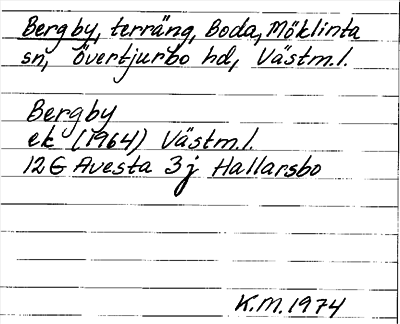 Bergby, terräng, Boda, Möklinta
sn, övertjurbo hd, Västm.l.
Bergby
ek (1964) Västm.l.
12G Avesta 3j Hallarsbo
K.M. 1974